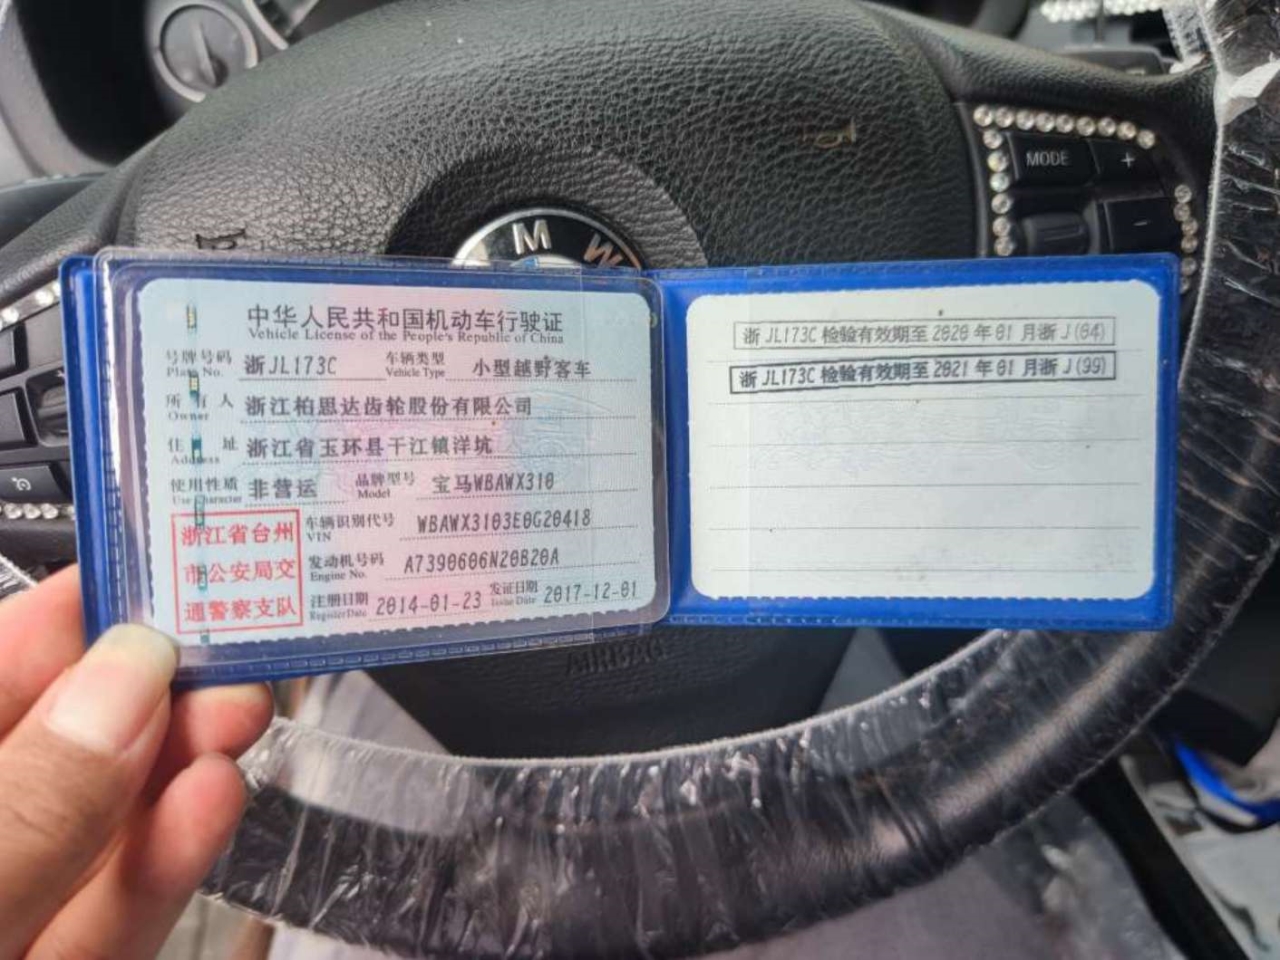 MODE
+
-
M W
中华人民共和国机动车行驶证
Vehicle License of the People's Republic of China
号牌号码 浙JL173C 车辆类型 小型越野客车
Plate No. Vehicle Type
所有人 浙江柏思达齿轮股份有限公司
Owner
住址 浙江省玉环县干江镇洋坑
Address
使用性质 非营运 品牌型号 宝马WBAWX310
Use Character Model
浙江省台州
市公安局交
通警察支队
车辆识别代号 WBAWX3103E0G20418
VIN
发动机号码 A7390606N20B20A
Engine No.
注册日期 2014-01-23 发证日期 2017-12-01
Register Date Issue Date
浙JL173C 检验有效期至 2020 年 01 月浙 J(04)
浙JL173C 检验有效期至 2021 年 01 月浙 J(99)
AIRBAG